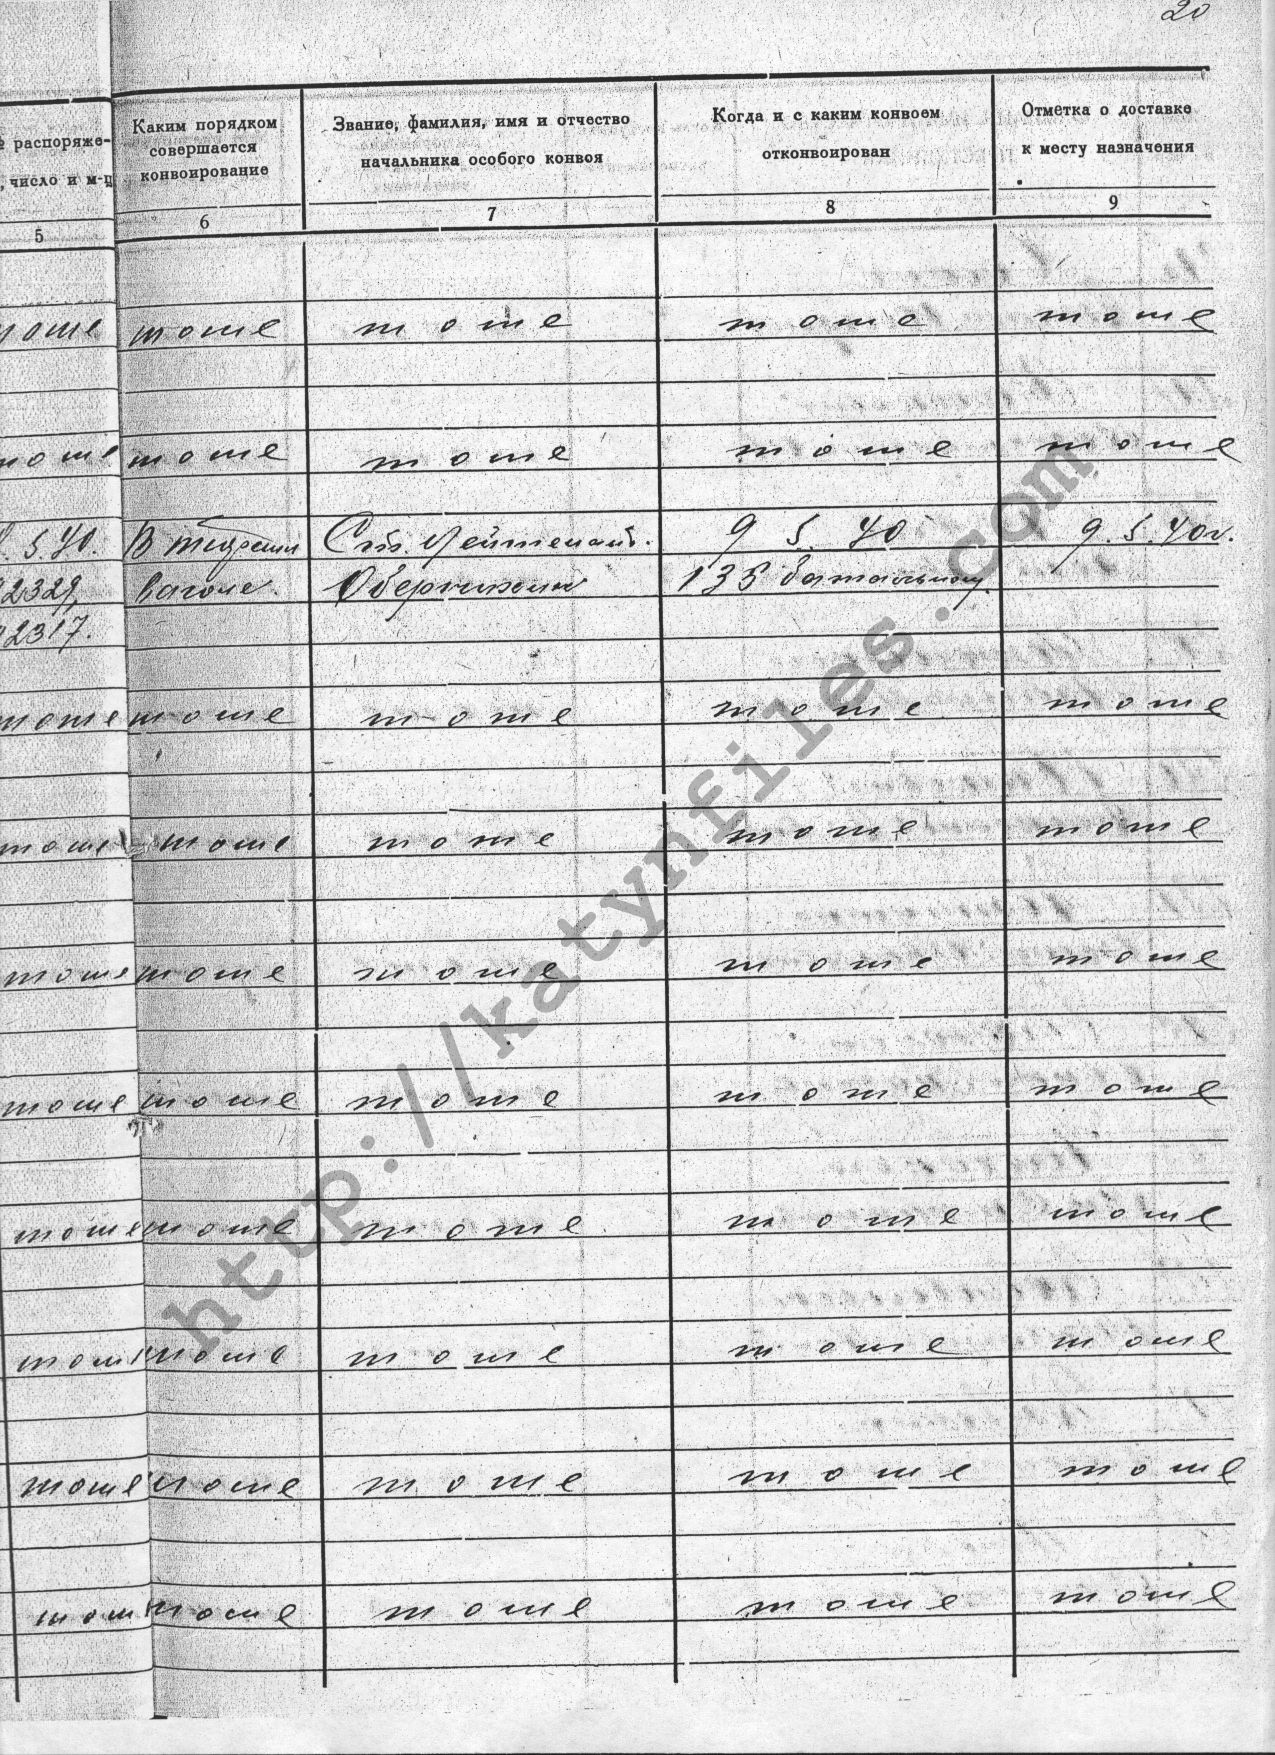 20
№ распоряже-
, число и м-ц
Каким порядком
совершается
конвоирование
Звание, фамилия, имя и отчество
начальника особого конвоя
Когда и с каким конвоем
отконвоирован
Отметка о доставке
к месту назначения
5 6 7 8 9
тоже тоже тоже тоже тоже
тоже тоже тоже тоже тоже
. 5.40. В тюремн Ст. Лейтенант. 9 5. 40 9. 5. 40г.
2329, вагоне. 135 батальному.
2317.
тоже тоже тоже тоже тоже
тоже тоже тоже тоже тоже
тоже тоже тоже тоже тоже
тоже тоже тоже тоже тоже
тоже тоже тоже тоже тоже
тоже тоже тоже тоже тоже
тоже тоже тоже тоже тоже
тоже тоже тоже тоже тоже
http://katynfiles.com